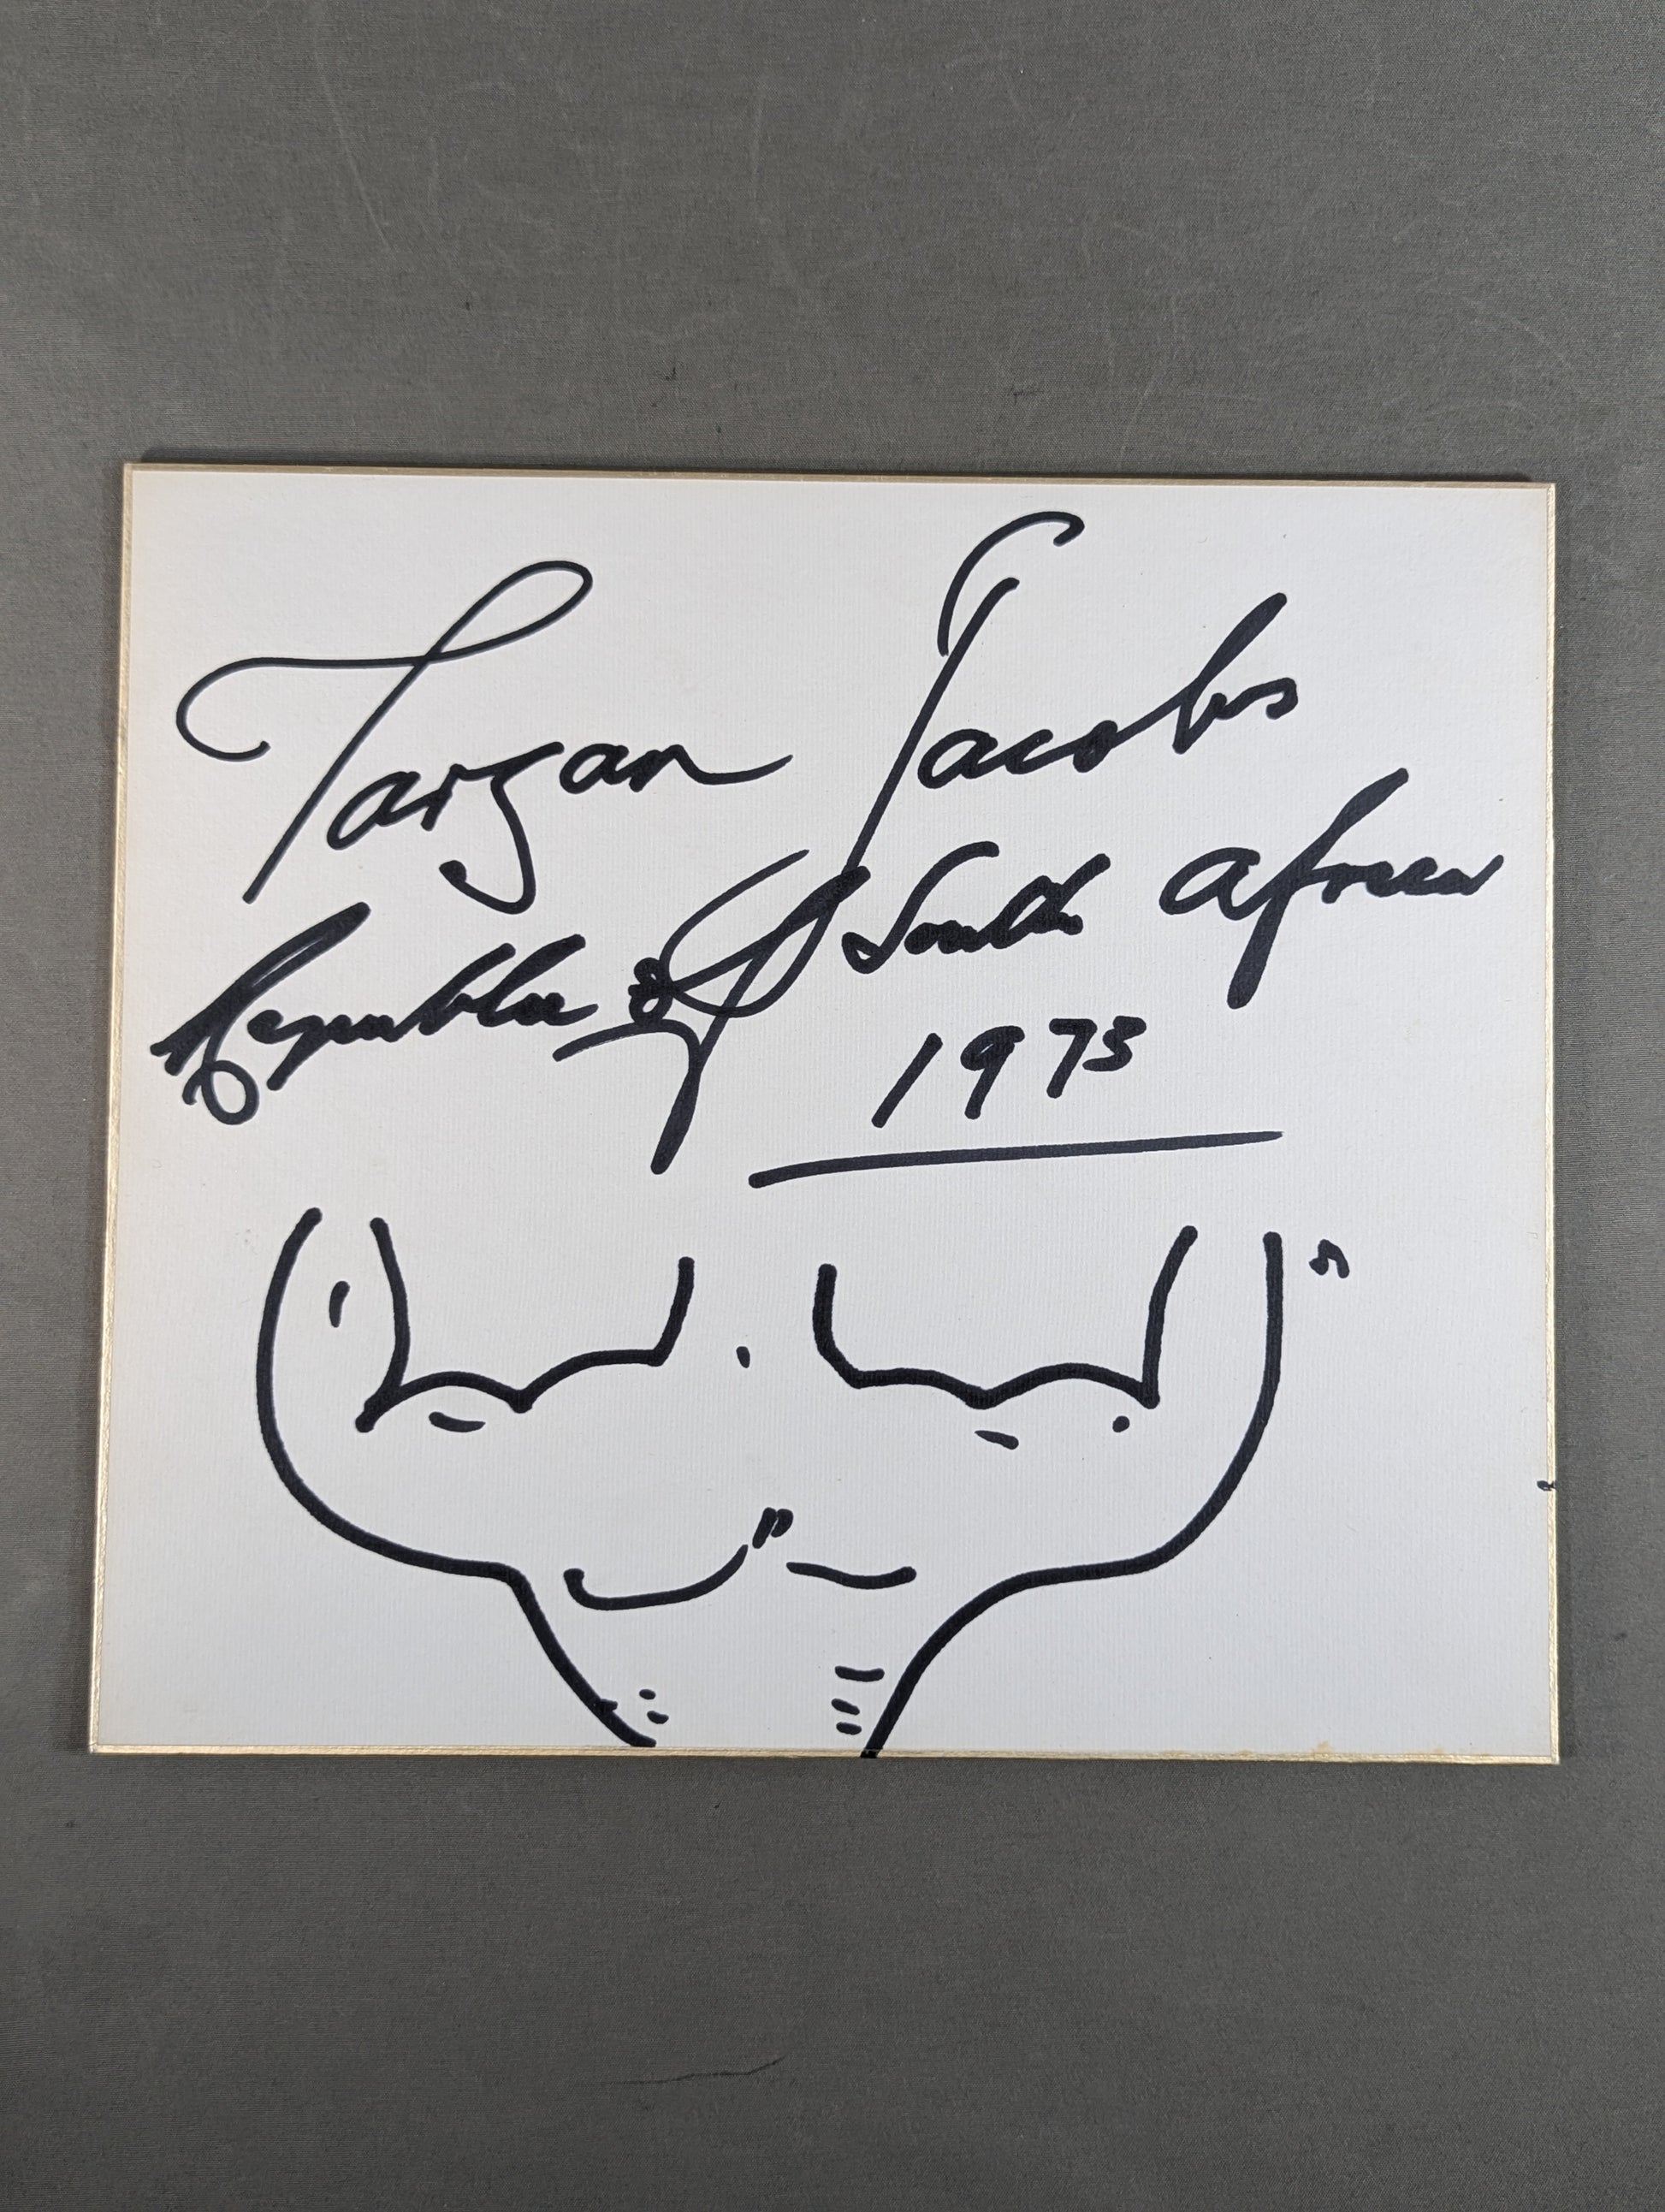 Tarzan Jacobs
Republic of South Africa
1973